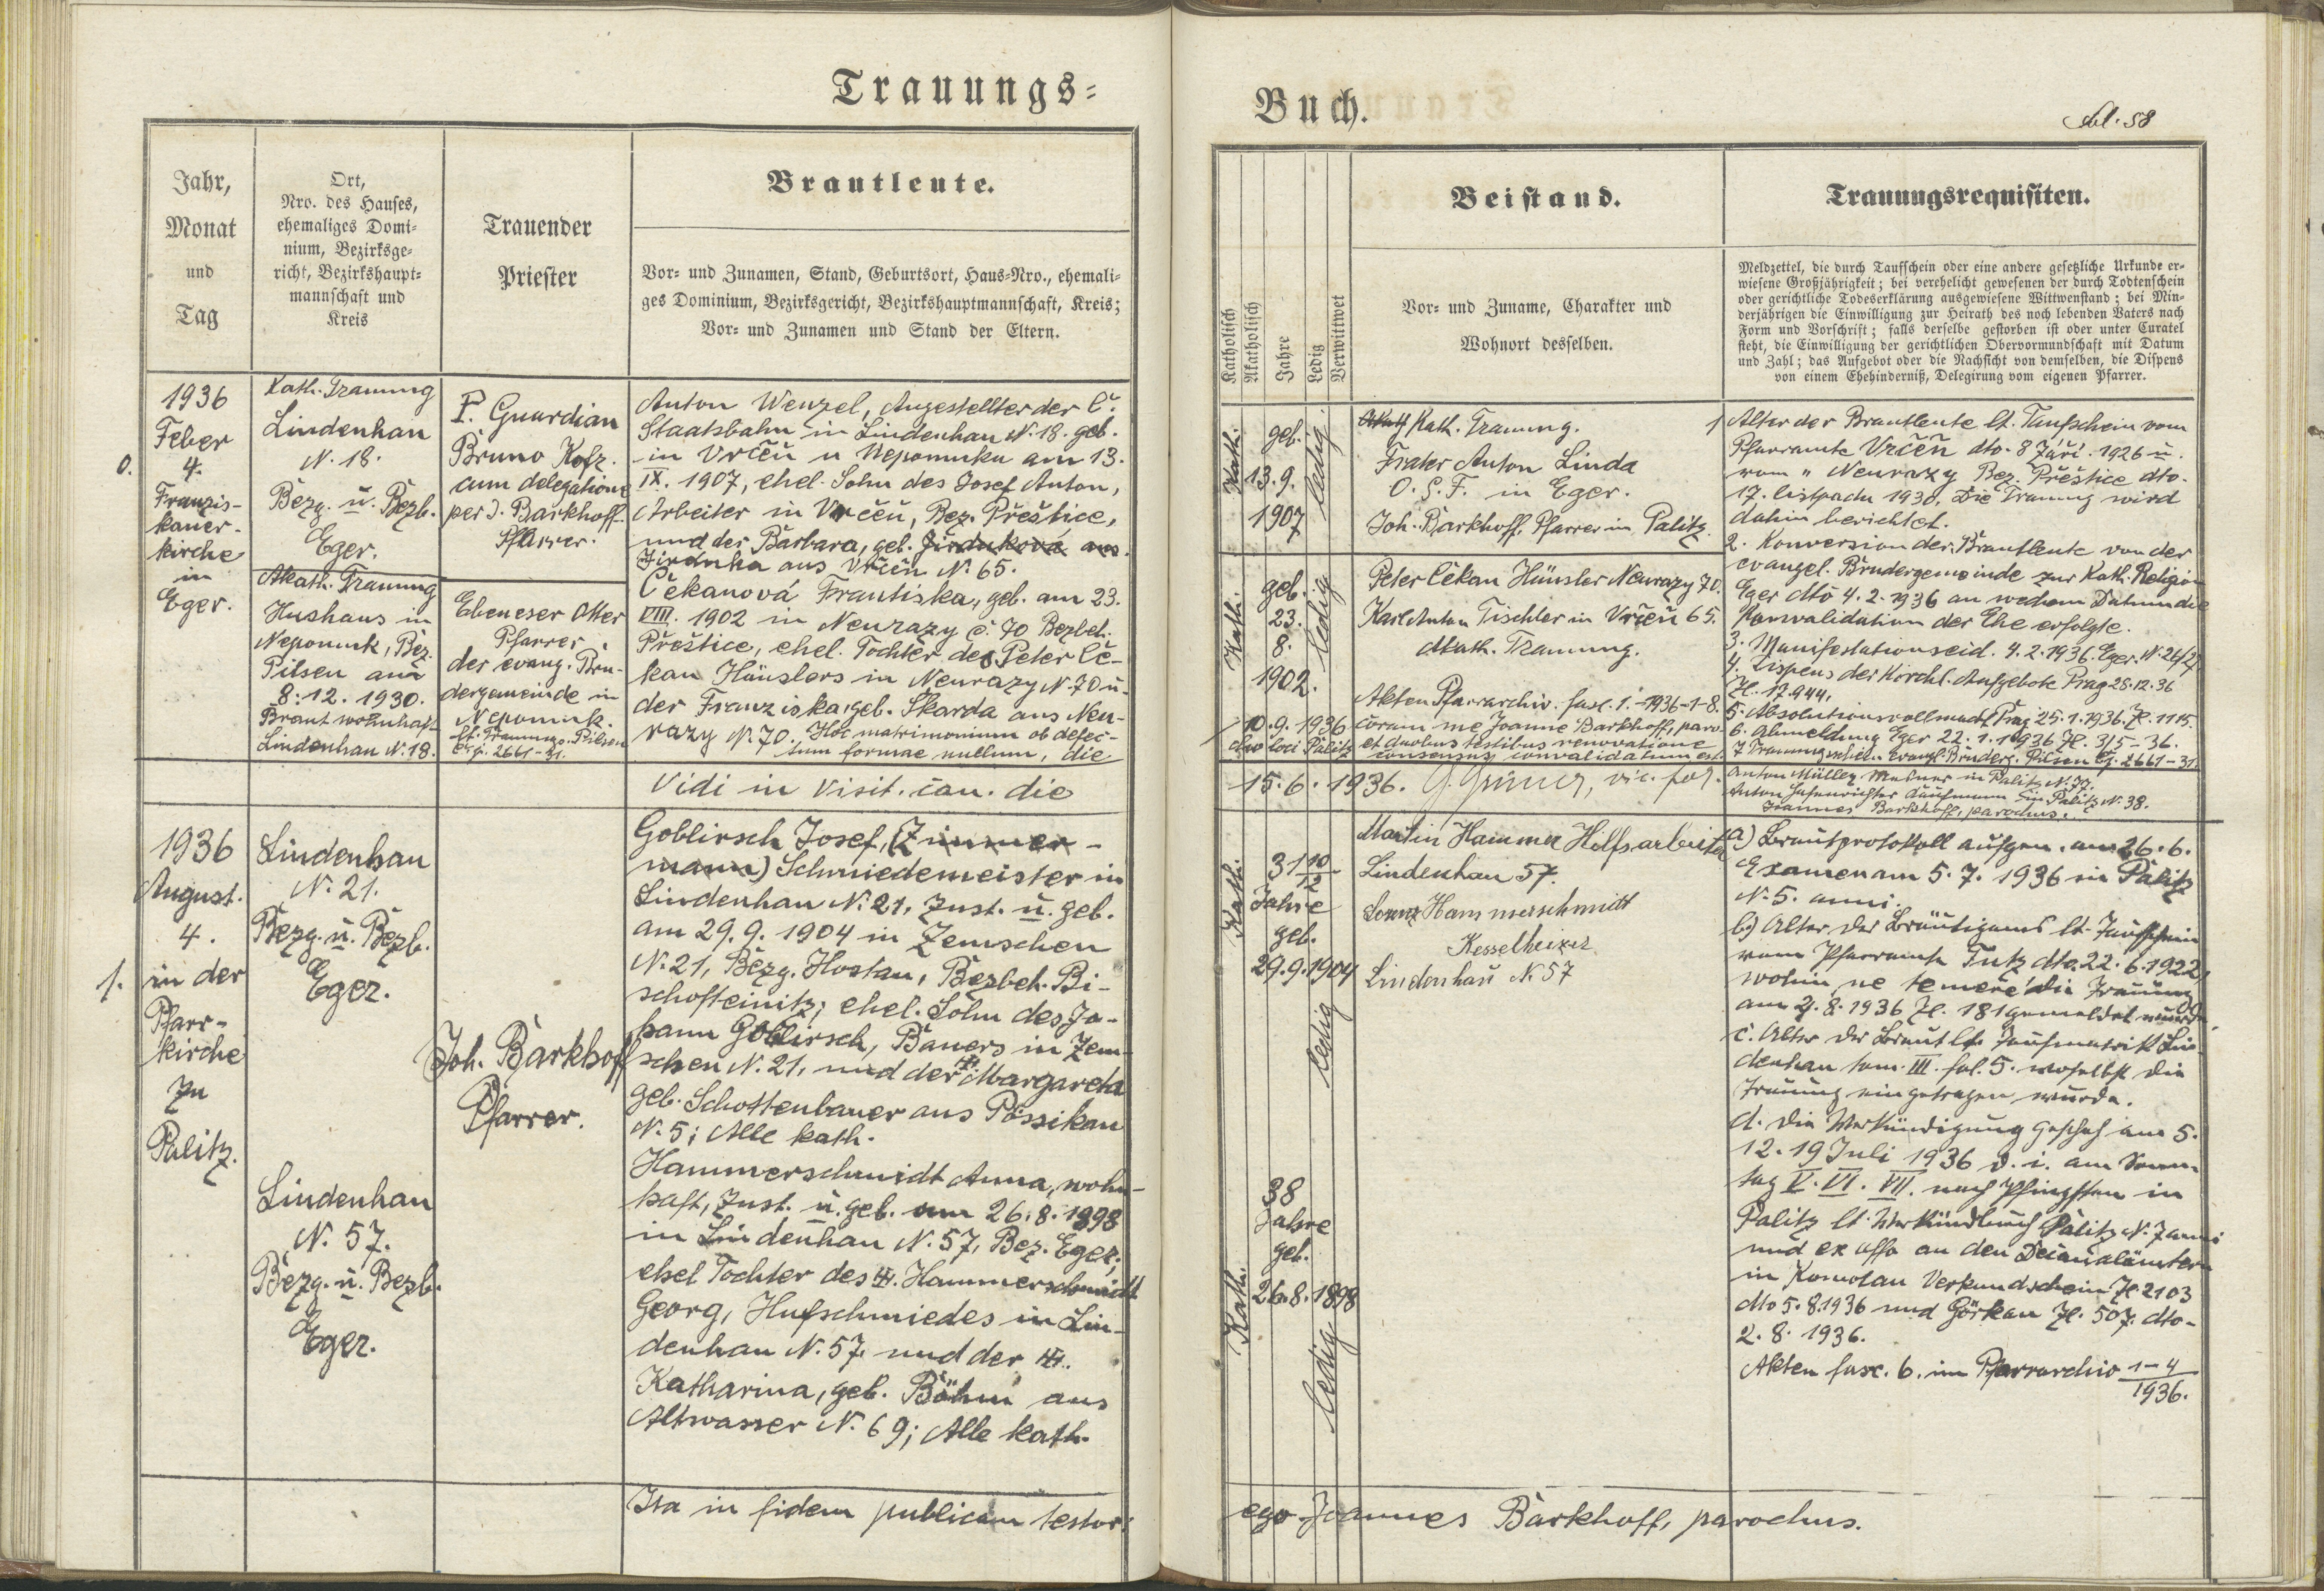 Trauungs=
Jahr,
Monat
und
Tag
Ort,
Nro. des Hauses,
ehemaliges Domi-
nium, Bezirksge-
richt, Bezirkshaupt-
mannschaft und
Kreis
Trauender
Priester
Brautleute.
Vor- und Zunamen, Stand, Geburtsort, Haus-Nro., ehemali-
ges Dominium, Bezirksgericht, Bezirkshauptmannschaft, Kreis;
Vor- und Zunamen und Stand der Eltern.
0.
1936
Feber
4.
Franzis-
kaner-
kirche
in
Eger.
Kath. Trauung
Lindenhau
N. 18.
Bezg. u. Bezb.
Eger.
Akath. Trauung
Hushaus in
Nepomuk, Bez.
Pilsen am
8.12.1930.
Braut wohnhaft
Lindenhau N. 18.
P. Guardian
Bruno Kofr.
cum delegatione
per J. Barkhoff
Pfarrer.
Ebeneser Otter
Pfarrer
der evang. Brü-
dergemeinde in
Nepomuk.
lt. Trauungs. Pilsen
čj. 2661-31.
Anton Wenzel, Angestellter der č.
Staatsbahn in Lindenhau N. 18. geb.
in Vrčeň u Nepomuku am 13.
IX. 1907, ehel. Sohn des Josef Anton,
Arbeiter in Vrčeň, Bez. Přeštice,
und der Barbara, geb. Jirduková aus
Jirduka aus Vrčeň N. 65.
Čekanová Františka, geb. am 23.
VIII. 1902 in Neurazy č. 70 Bezbeh.
Přeštice, ehel. Tochter des Peter Če-
kan Häuslers in Neurazy N. 70 u.
der Franziska, geb. Škarda aus Neu-
razy N. 70. Hoc matrimonium ob defec-
tum formae nullum, die
Vidi in Visit. can. die
1.
1936
August.
4.
in der
Pfarr-
kirche
zu
Palitz.
Lindenhau
N. 21.
Bezg. u. Bezb.
Eger.
Lindenhau
N. 57.
Bezg. u. Bezb.
Eger.
Joh. Barkhoff
Pfarrer.
Goblirsch Josef, (Zimmer-
mann) Schmiedemeister in
Lindenhau N. 21, Zust. u. geb.
am 29.9.1904 in Zemschen
N. 21, Bezg. Hostau, Bezbeh. Bi-
schofteinitz; ehel. Sohn des Jo-
hann Goblirsch, Bauers in Zem-
schen N. 21, und der Margareta
geb. Schottenbauer aus Pössikau
N. 5; Alle kath.
Hammerschmidt Anna, wohn-
haft, Zust. u. geb. am 26.8.1898
in Lindenhau N. 57, Bez. Eger.
ehel Tochter des Hammerschmidt
Georg, Hufschmiedes in Lin-
denhau N. 57. und der
Katharina, geb. Böhm aus
Altwasser N. 69; Alle kath.
Ita in fidem publicam testor:
Buch.
fol. 58
Katholisch
Akatholisch
Jahre
Ledig
Verwittwet
Beistand.
Vor- und Zuname, Charakter und
Wohnort desselben.
Trauungsrequisiten.
Meldzettel, die durch Taufschein oder eine andere gesetzliche Urkunde er-
wiesene Großjährigkeit; bei verehelicht gewesenen der durch Todtenschein
oder gerichtliche Todeserklärung ausgewiesene Wittwenstand; bei Min-
derjährigen die Einwilligung zur Heirath des noch lebenden Vaters nach
Form und Vorschrift; falls derselbe gestorben ist oder unter Curatel
steht, die Einwilligung der gerichtlichen Obervormundschaft mit Datum
und Zahl; das Aufgebot oder die Nachsicht von demselben, die Dispens
von einem Ehehinderniß, Delegirung vom eigenen Pfarrer.
Kath.
geb.
13.9.
1907
ledig
Kath. Trauung.
Frater Anton Linda
O. S. F. in Eger.
Joh. Barkhoff, Pfarrer in Palitz
Kath.
geb.
23.
8.
1902.
ledig
Peter Čekan Häusler Neurazy 70.
Karl Anton Tischler in Vrčeň 65.
Akath. Trauung.
Akten Pfarrarchiv. fasc. 1.-1936-1-8.
10.9.1936 coram me Joanne Barkhoff, paro-
cho loci Palitz et duobus testibus renovatione
consensus convalidatum est.
15.6.1936. G. Grüner, vic. for.
1 Alter der Brautleute lt. Taufschein vom
Pfarramte Vrčeň dto. 8 Září 1926 u.
vom " Neurazy Bez. Přeštice dto.
17. listpadu 1930. Die Trauung wird
dahin berichtet.
2. Konversion der Brautleute von der
evangel. Brudergemeinde zur Kath. Religion
Eger dto 4.2.1936 an wechem Datum die
Konvalidation der Ehe erfolgte.
3. Manifestationseid. 4.2.1936. Eger. N. 26/27
4. Dispens der Kirchl. Aufgebote Prag 28.12.36
Zl. 17.944.
5. Absolutionsvollmacht Prag 25.1.1936. Zl. 1115.
6. Abmeldung Eger 22.1.1936 Zl. 315-36.
7 Trauungsschein evangl. Brüderg. Pilsen čj. 2661-31.
Anton Müller, Mesner in Palitz N. 77.
Anton Hasenrichter Kaufmann in Palitz N. 38.
Joannes Barkhoff, parochus.
Kath.
31 10/12
Jahre
geb.
29.9.1904
ledig
Martin Hammer Hilfsarbeiter
Lindenhau 57.
Lorenz Hammerschmidt
Kesselheizer
Lindenhau N. 57
Kath.
38
Jahre
geb.
26.8.1898
ledig
a) Brautprotokoll aufgen. am 26.6.
Examen am 5.7.1936 in Palitz
N. 5. anni.
b) Alter des Bräutigams lt. Taufschein
vom Pfarramte Tutz dto. 22.6.1922,
wohin ne temere die Trauung
am 21.8.1936 Zl. 181 gemeldet wurde.
c. Alter der Braut lt. Taufmatrik Lin-
denhau tom. III. fol. 5. woselbst die
Trauung eingetragen wurde.
d. Die Verkündigung geschah am 5.
12. 19 Juli 1936 d. i. am Sonn-
tag V. VI. VII. nach Pfingsten in
Palitz lt. Verkündbuch Palitz N. 7 anni
und ex offo an den Dekanalämtern
in Komotau Verkundschein Zl 2103
dto 5.8.1936 und Görkau Zl. 507. dto-
2.8.1936.
Akten fasc. 6. im Pfarrarchiv 1-4/1936.
ego Joannes Barkhoff, parochus.